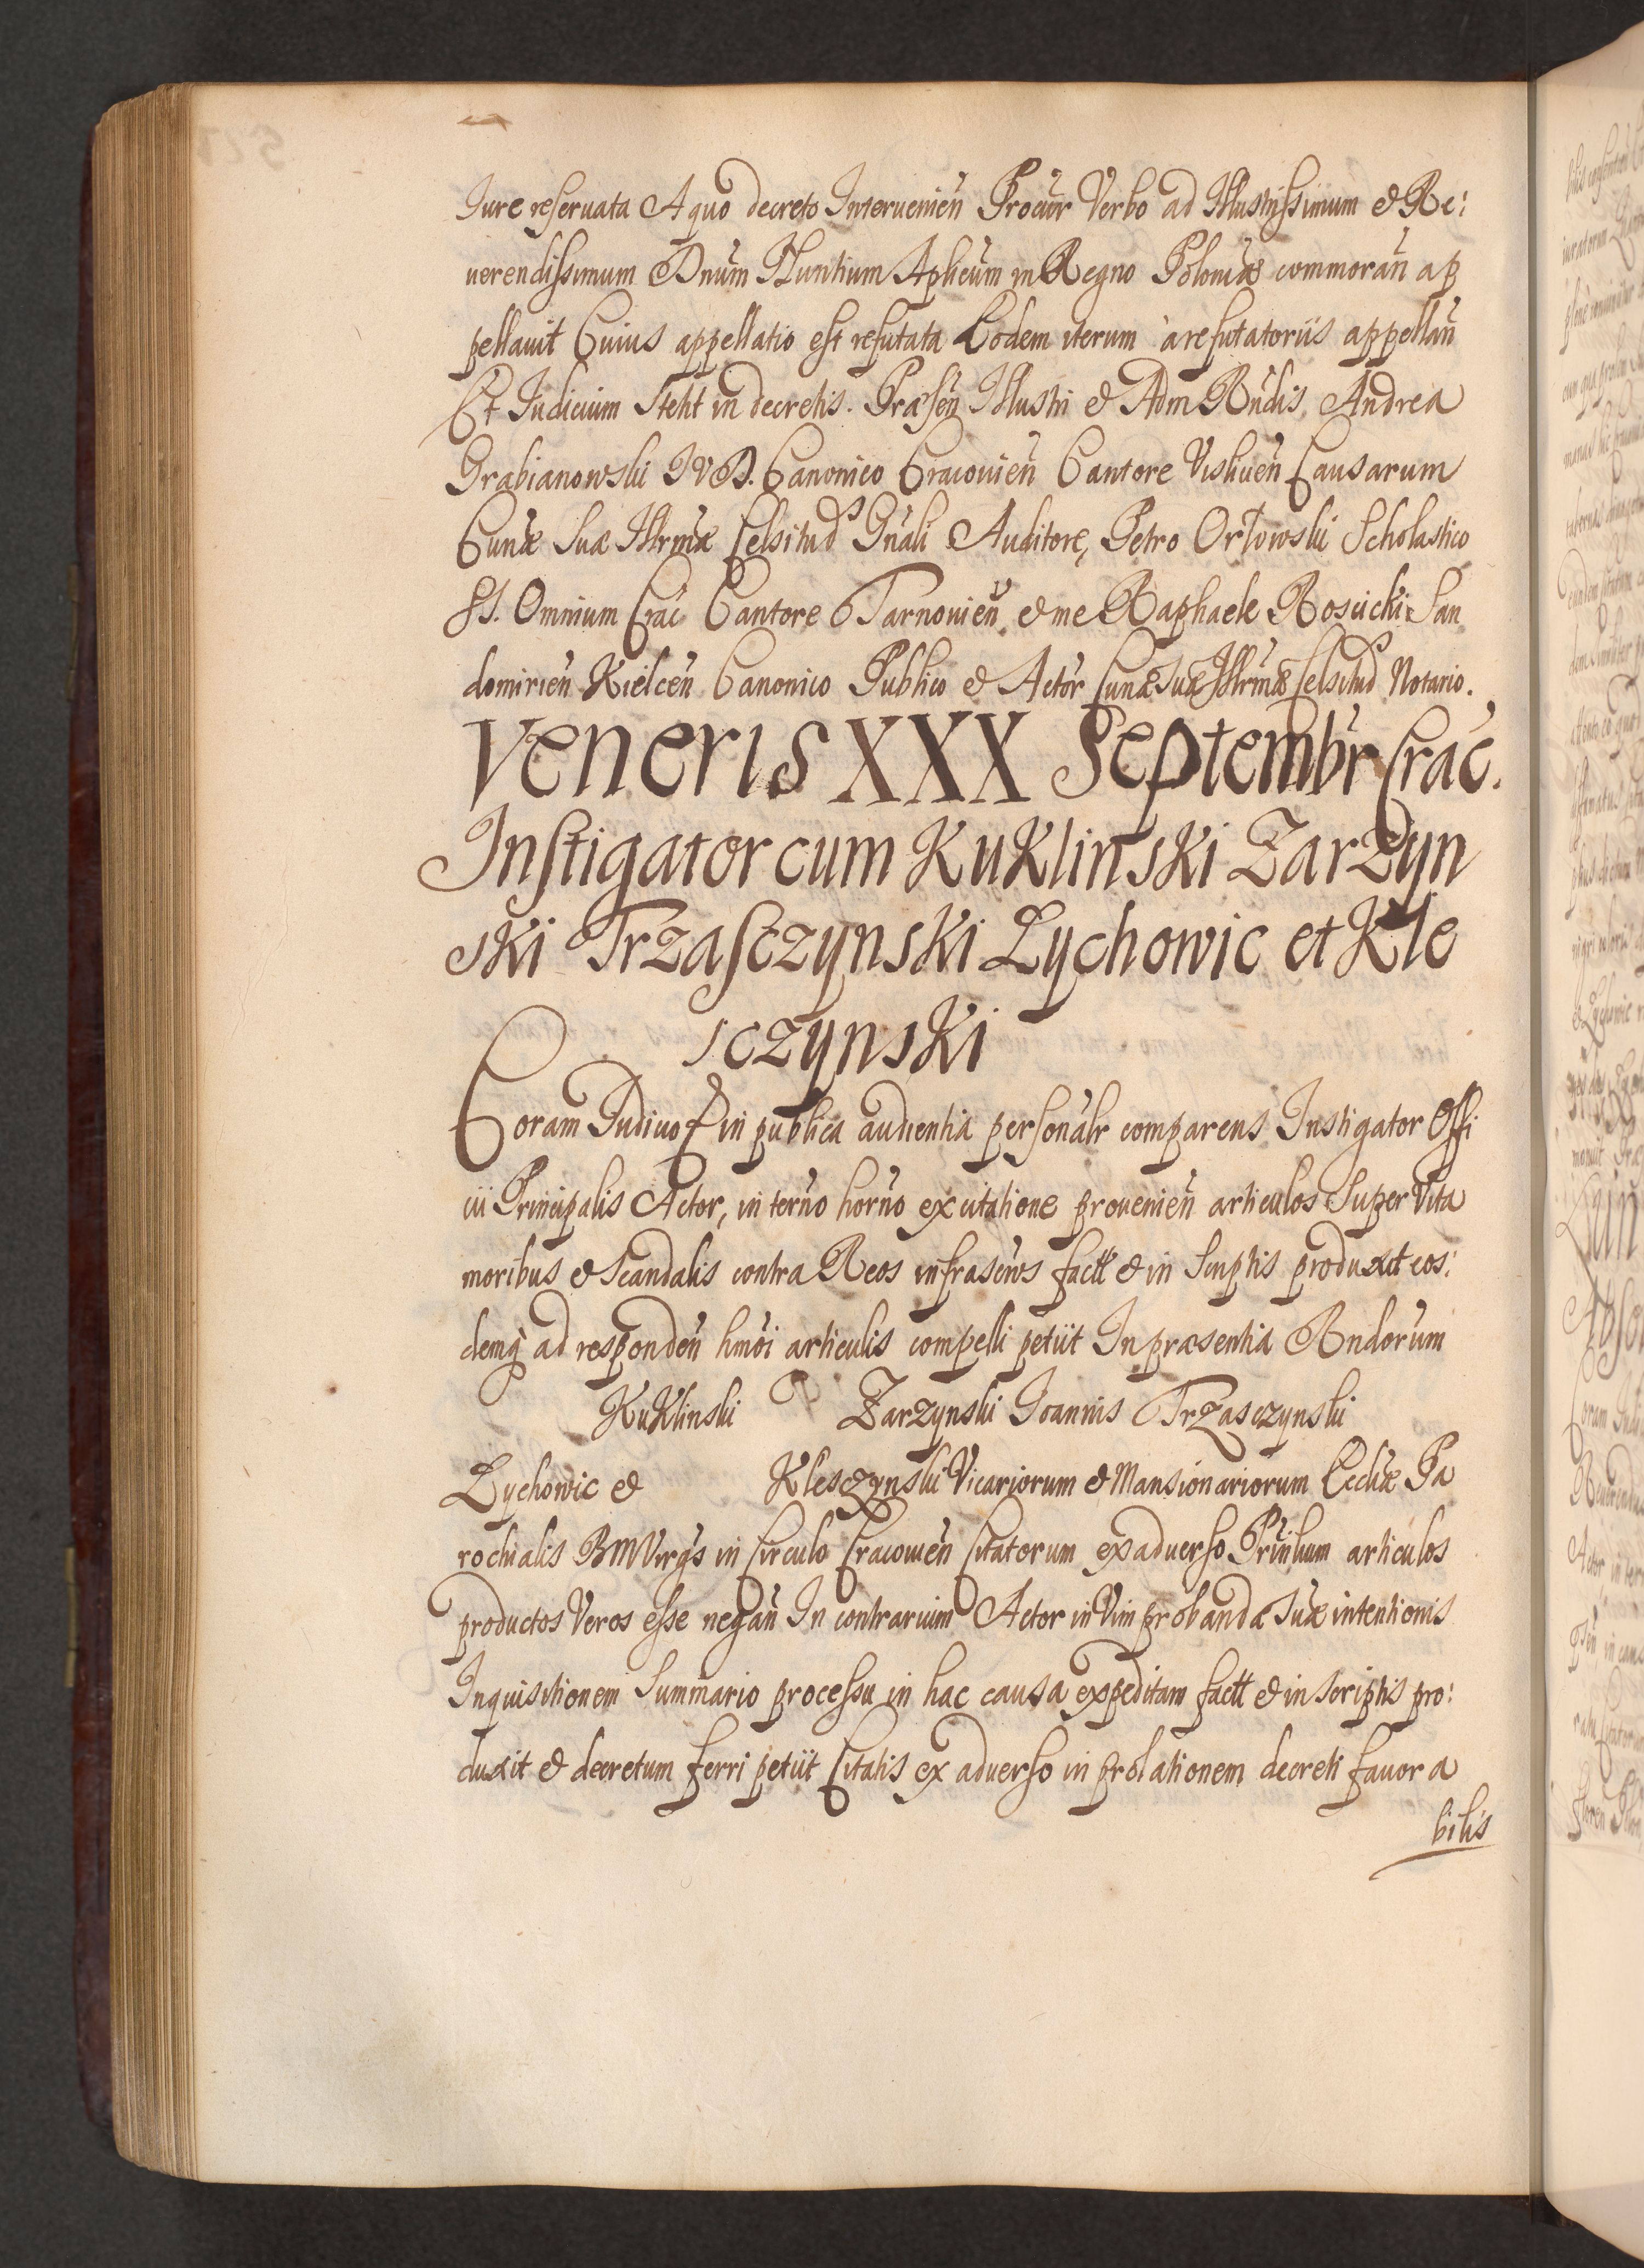 Iure reseruata A quo decreto Interuenien Procur Verbo ad Illustrissimum & Re:
uerendissimum Dnum Nuntium Aplicum in Regno Poloniæ commoran ap
pellauit Cuius appellatio est refutata Eodem iterum a refutatoriis appellan
Et Iudicium stetit in decretis. Præsen Illustri & Adm Rndis Andrea
Grabianowski IVD. Canonico Cracouien Cantore Vislicen Causarum
Curiæ Suæ Illrmæ Celsitud Gnali Auditore, Petro Orłowski Scholastico
SS. Omnium Crac Cantore Tarnouien & me Raphaele Roscicki San
domirien Kielcen Canonico Publico & Actor Curiæ Suæ Illrmæ Celsitud Notario.
Veneris XXX Septembr Crac.
Instigator cum Kuklinski Zarzyn
ski Trzasczynski Lychowic et Kle
sczynski
Coram Iudicio & in publica audientia personalr comparens Instigator Offi
cii Principalis Actor, in terno horno ex citatione prouenien articulos super Vita
moribus & scandalis contra Reos infrascrios factt & in scriptis produxit eos:
demq ad responden hmoi articulis compelli petiit In præsentia Rndorum
Kuklinski Zarzynski Ioannis Trzasczynski
Lychowic & Klesczynski Vicariorum & Mansionariorum Eccliæ Pa
rochialis BMVirgs in Circulo Cracouien Citatorum ex aduerso Prinlium articulos
productos Veros esse negan In contrarium Actor in Vim probandæ suæ intentionis
Inquisitionem Summario processu in hac causa expeditam factt & in scriptis pro:
duxit & decretum ferri petiit Citatis ex aduerso in prolationem decreti fauora
bilis